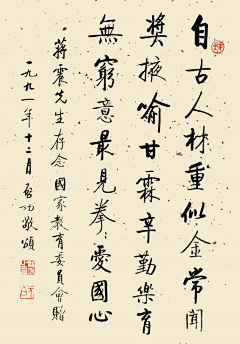 自古人材重似金常聞
獎掖喻甘霖辛勤樂育
無窮意最見拳〻愛國心
蔣震先生存念 國家教育委員會贈
一九九一年十二月 啟功敬頌